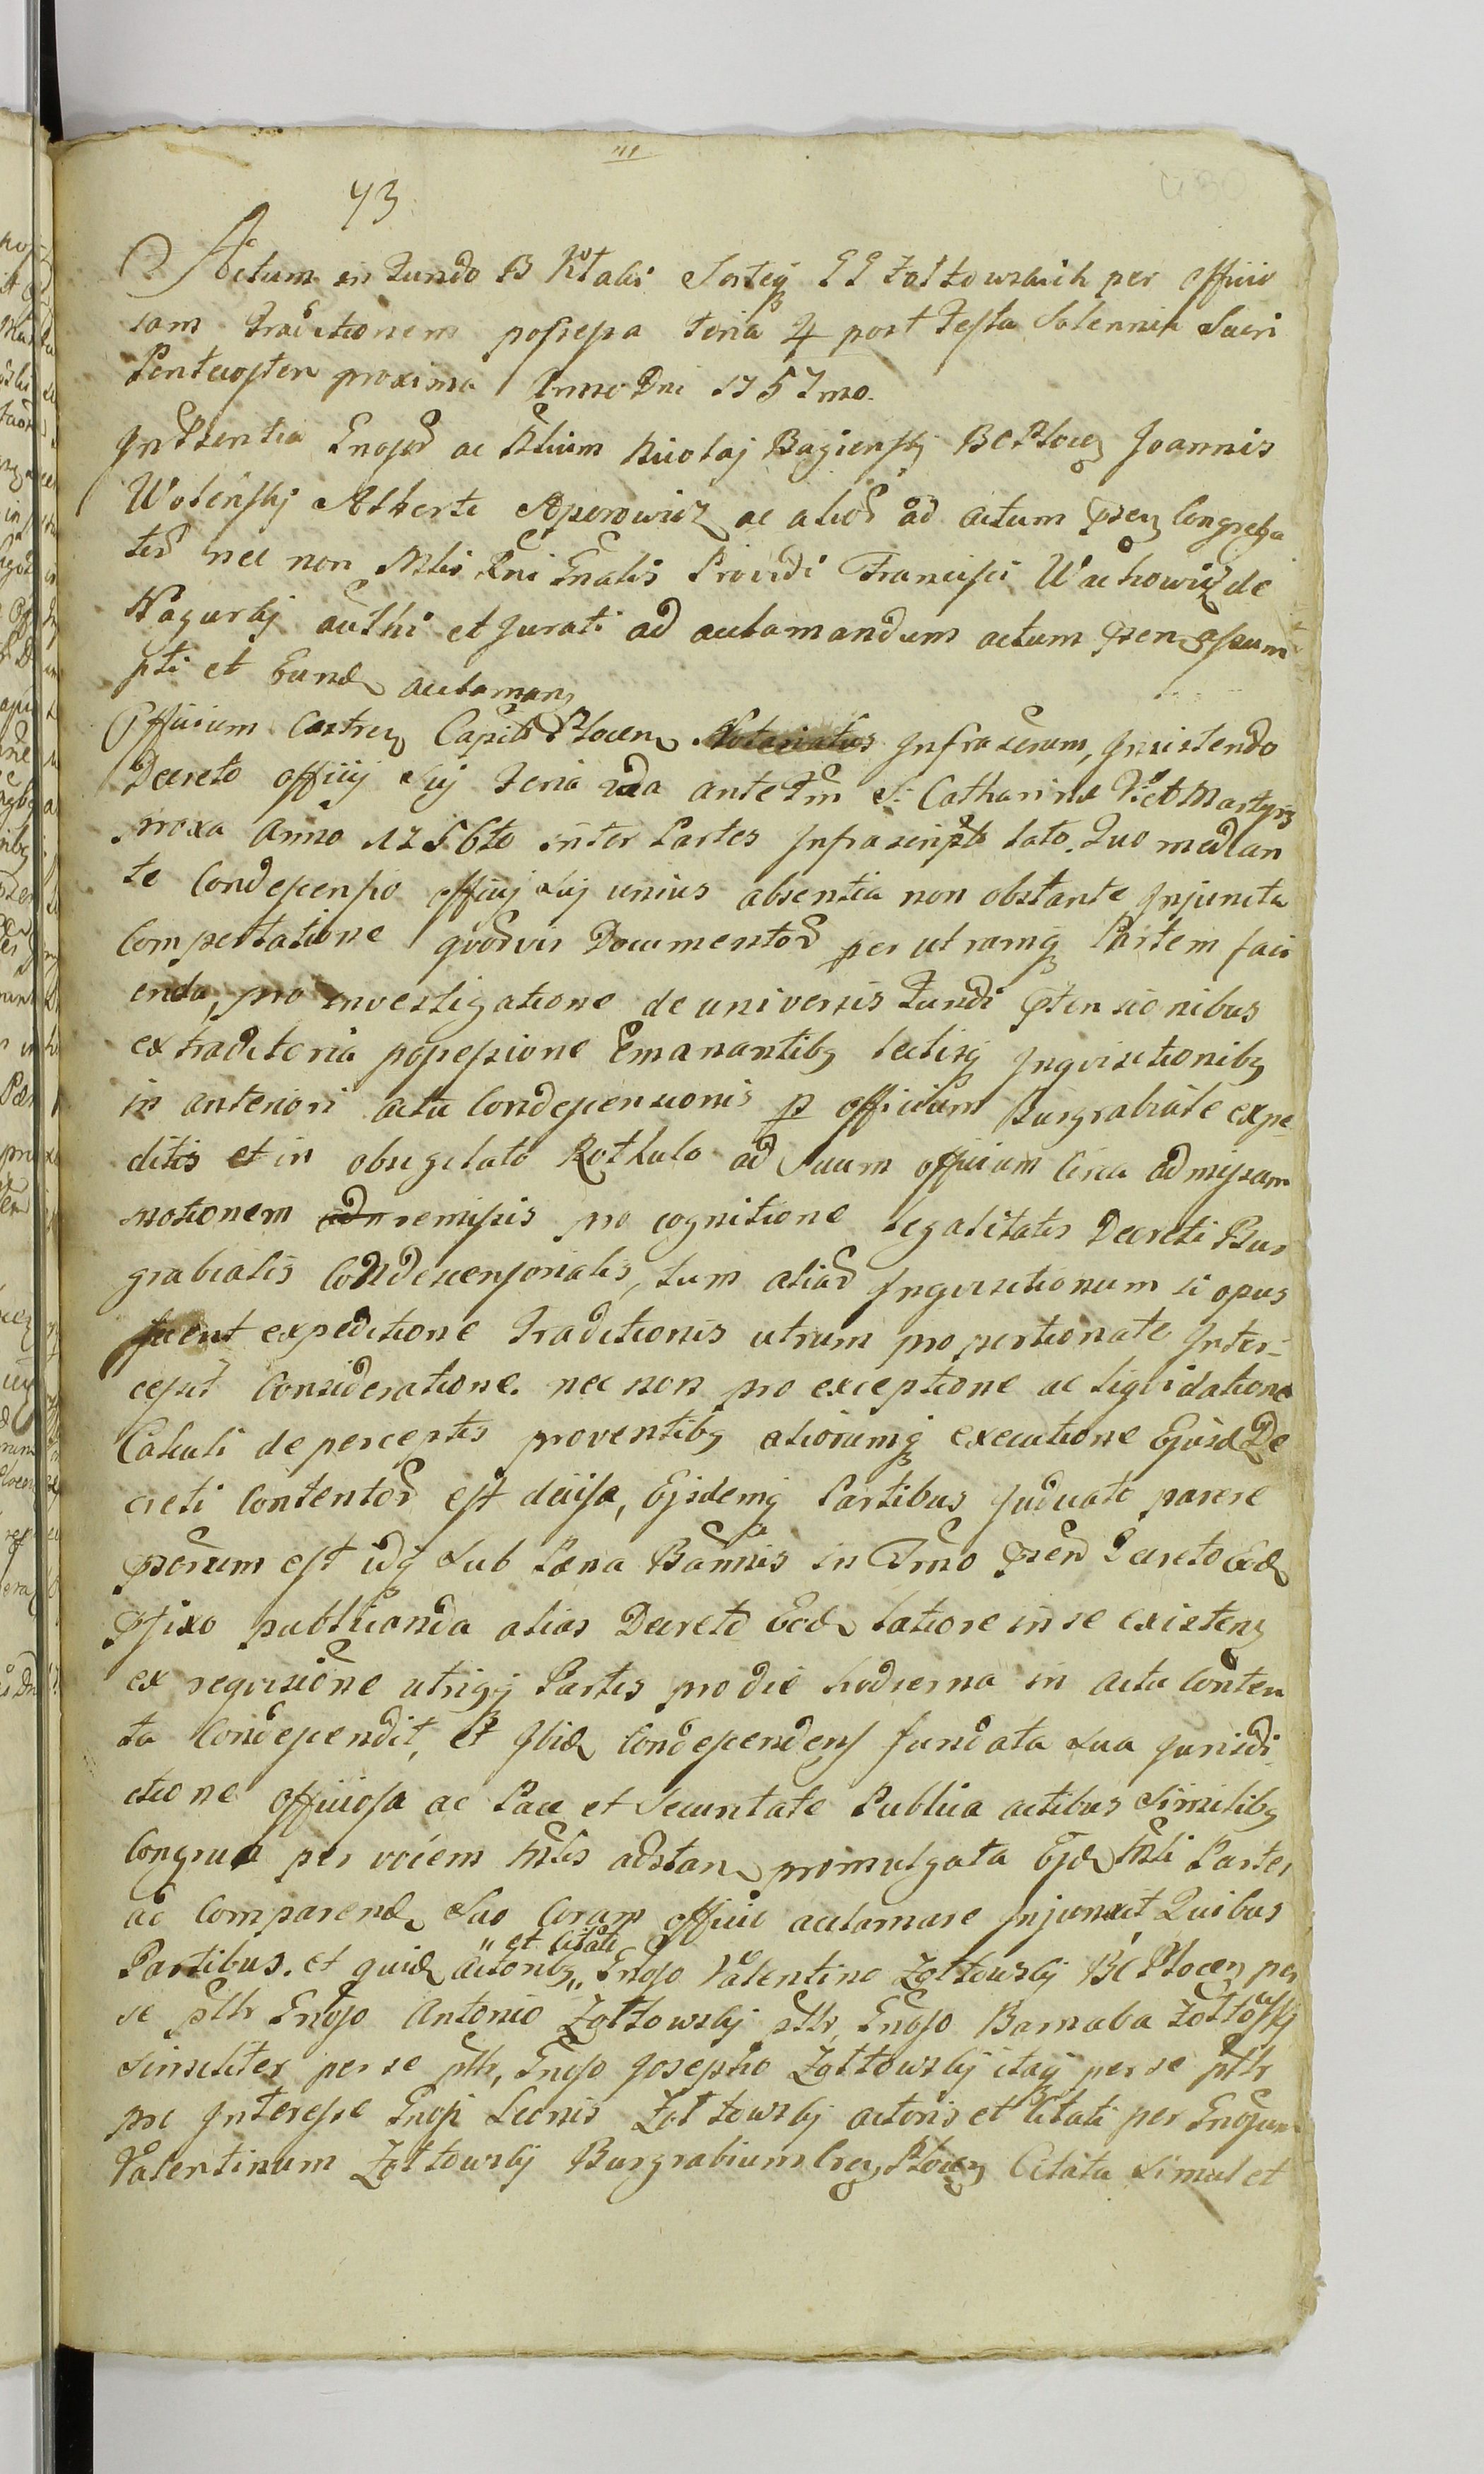 73
Actum in Fundo B Ktalri Sorteq GG Zołtowskich per officio
sam Traditionem possessa Feria 4 post Festa Solennia Sacri
Pentecosten proxima Anno Dni 1757mo.
In Psentia Gnosor ac Nlium Nicolaj Bagienskj BCPlocen Joannis
Wolenskj Alberti Aperowicz ac alior ad actum psen Congrega
tor nec non Mlis Rni Gnalis Providi Francisci Wachowicz de
Nagurkj authi et Jurati ad aclamandum actum psen assum
pti et Eund aclaman
Officium Castren Capitle Plocen Notariatus Infrascrum, Insistendo
Decreto officij Sui Feria 2da ante Fm S: Catharinæ V: et Martyris
proxa Anno 1756to inter Partes Infrascriptas lato. Quo median
te Condescensio officij Sui unius absentia non obstante Injuncta
Comportatione quorvis Documentor per utramq Partem faci
enda, pro investigatione de universis Fundi ptensionibus
ex traditoria possessione Emanantibq lectisq Inquisitionibq
in anteriori actu Condescensionis p officium Burgrabiale expe
ditis et in obsigilato Rothulo ad Suum officium Circa admissam
motionem adr remissis pro cognitione legalitatis Decreti Bur
grabialis Condescensorialis, tum aliar Inquisitionum si opus
fuerit expeditione Traditionis utrum proportionate Inter-
cessit Consideratione. nec non pro exceptione ac liquidatione
Calculi de perceptis proventibq aliorumq executione Ejusd De
creti Contentor est decisa, Eisdemq Partibus Judicato parere
pscrum est idq Sub Pæna Bannis in Trmo psen Decreto Eod
pfixo publicanda alias Decreto Eod latiore in se existen
ex requisicne utriq Partis pro die hodierna in actu Conten
to Condescendit, et Ibid Condescendens fundata Sua Jurisdi
ctione officiosa ac Pace et Securitate Publica actibus Similibq
Congrua per vocem Mlis adstan promulgata Ejd Mli Partes
ad Comparend Sao Coram officio aclamare Injunxit Quibus
Partibus. et quid actoribq „et Citatis„ Gnoso Valentino Zołtowskj BC Plocen per
se pttr Gnoso Antonio Zołtowskj pttr, Gnoso Barnaba Zołtowskj
Similiter per se pttr, Gnoso Josepho Zołtowskj itaq per se pttr
pro Interesse Gnosi Leonis Zołtowskj actoris et Citati per Gnosum
Valentinum Zołtowskj Burgrabium Cren Plocen Citatu Simul et